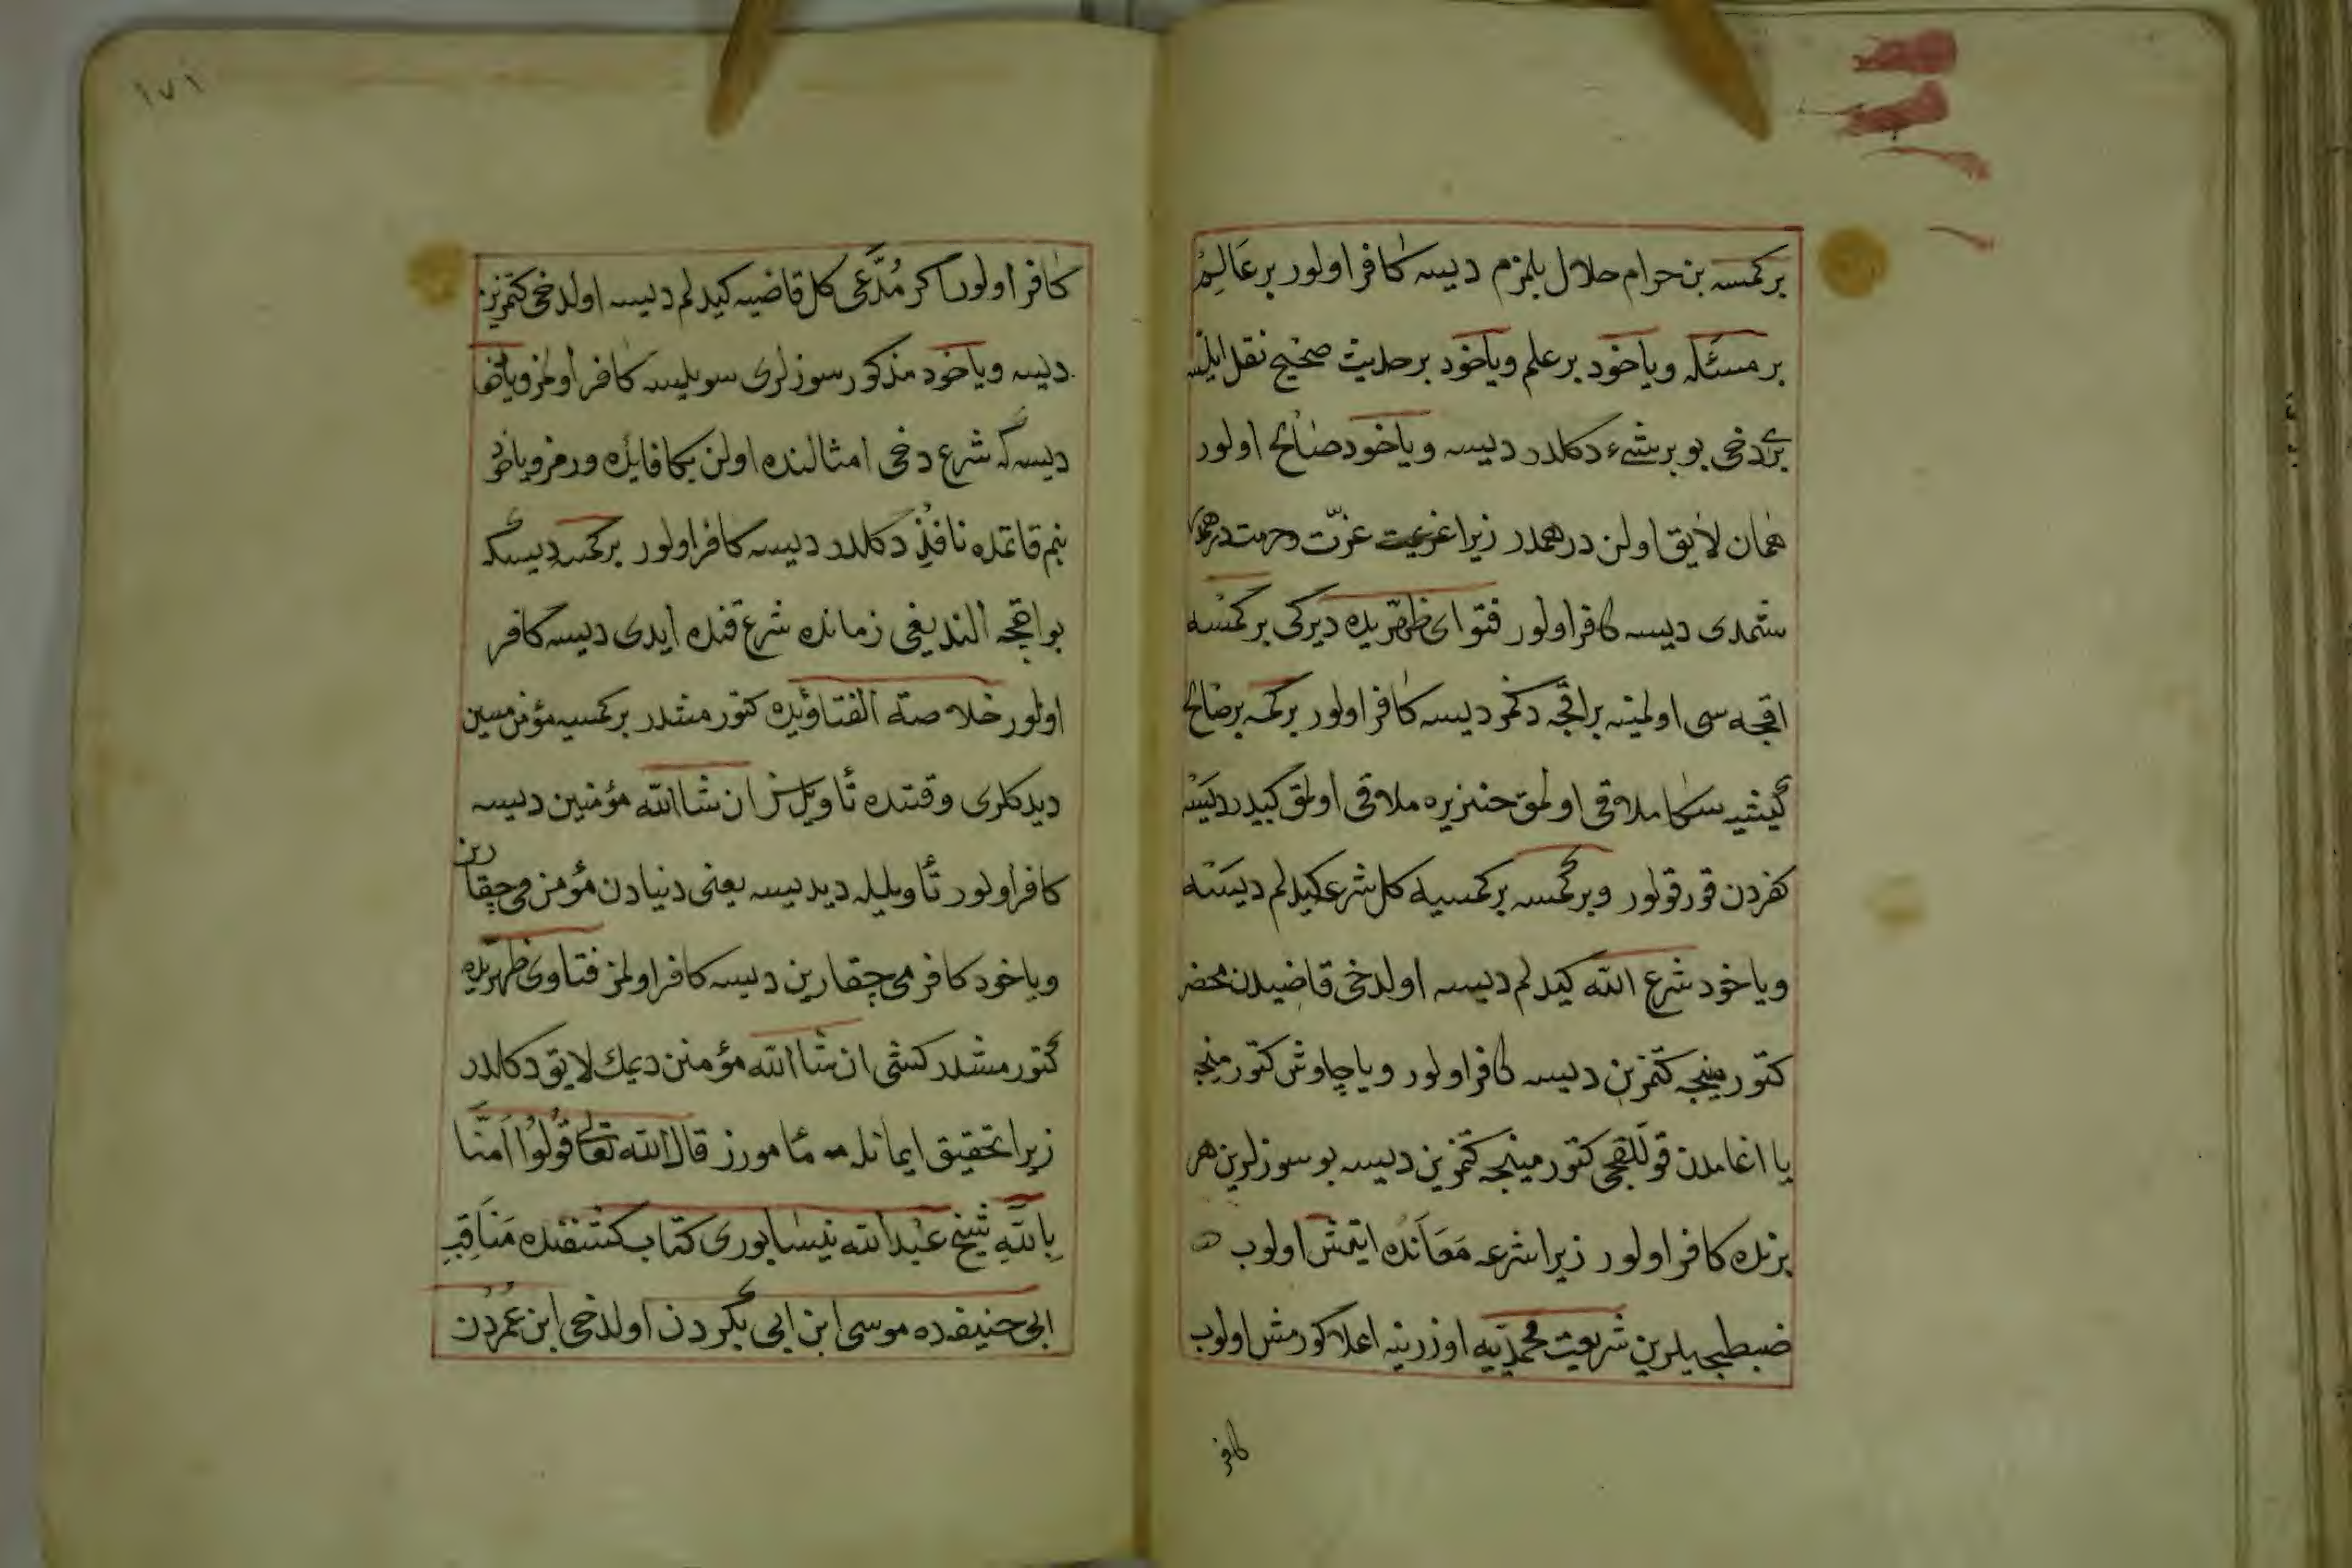 بر كمسه بن حرام حلال بلمزم ديسه كافر اولور بر عَالِمْ
بر مسئله وياخود بر علم وياخود بر حديث صحيح نقل ايلسه
برى دخى بو بر شىء دكلدر ديسه وياخود صالح اولور
همان لايق اولن درهمدر زيرا عزّت وحرمت درهمه
شمدى ديسه كافر اولور فتواى ظهيريده ديركى بر كمسه
اقچه سى اولمينه بر اقچه دكمز ديسه كافر اولور بر كمسه بر صالح
كيشيه سكا ملاقى اولمق خنزيره ملاقى اولمق كبيدر ديسه
كفردن قورقولور وبر كمسه بر كمسيه كل شرعه كيدلم ديسه
وياخود شرع الله كيدلم ديسه اولدخى قاضيدن محضر
كتورمينجه كتمزين ديسه كافر اولور ويا چاوش كتورمينجه
يا اغامدن قوللقجى كتورمينجه كتمزين ديسه بو سوزلرين هر
برنده كافر اولور زيرا شرعه مَعَانده ايتمش اولوب
ضبطيجيلرين شريعت محمّديّيه اوزرينه اعلا كورمش اولوب
كافر
١٧١
كافر اولور اكر مُدَّعى كل قاضيه كيدلم ديسه اولدخى كتمزين
ديسه وياخود مذكور سوزلرى سويلسه كافر اولمز وياخود
ديسه كه شرع دخى امثالنده اولن بكا فايده ورمز وياخود
بنم قاتمده نافذ دكلدر ديسه كافر اولور بر كمسه ديسكه
بو اقچه النديغى زمانده شرع قنده ايدى ديسه كافر
اولور خلاصة الفتاويده كتورمشدر بر كمسيه مؤمن مسين
ديدكلرى وقتده تأويلسز ان شاالله مؤمنين ديسه
كافر اولور تأويليله ديديسه يعنى دنيادن مؤمن مى چقارين
وياخود كافر مى چقارين ديسه كافر اولمز فتاوى ظهيريده
كتورمشدر كشى ان شاالله مؤمنن ديمك لايق دكلدر
زيرا تحقيق ايمانله مأمورز قال الله تعالى قُولُوا اَمَنَّا
بِاللَّهِ شيخ عبدالله نيسابورى كتاب كشفنده مَنَاقِبِ
ابى حنيفه ده موسى ابن ابى بكردن اولدخى ابن عُمَردن